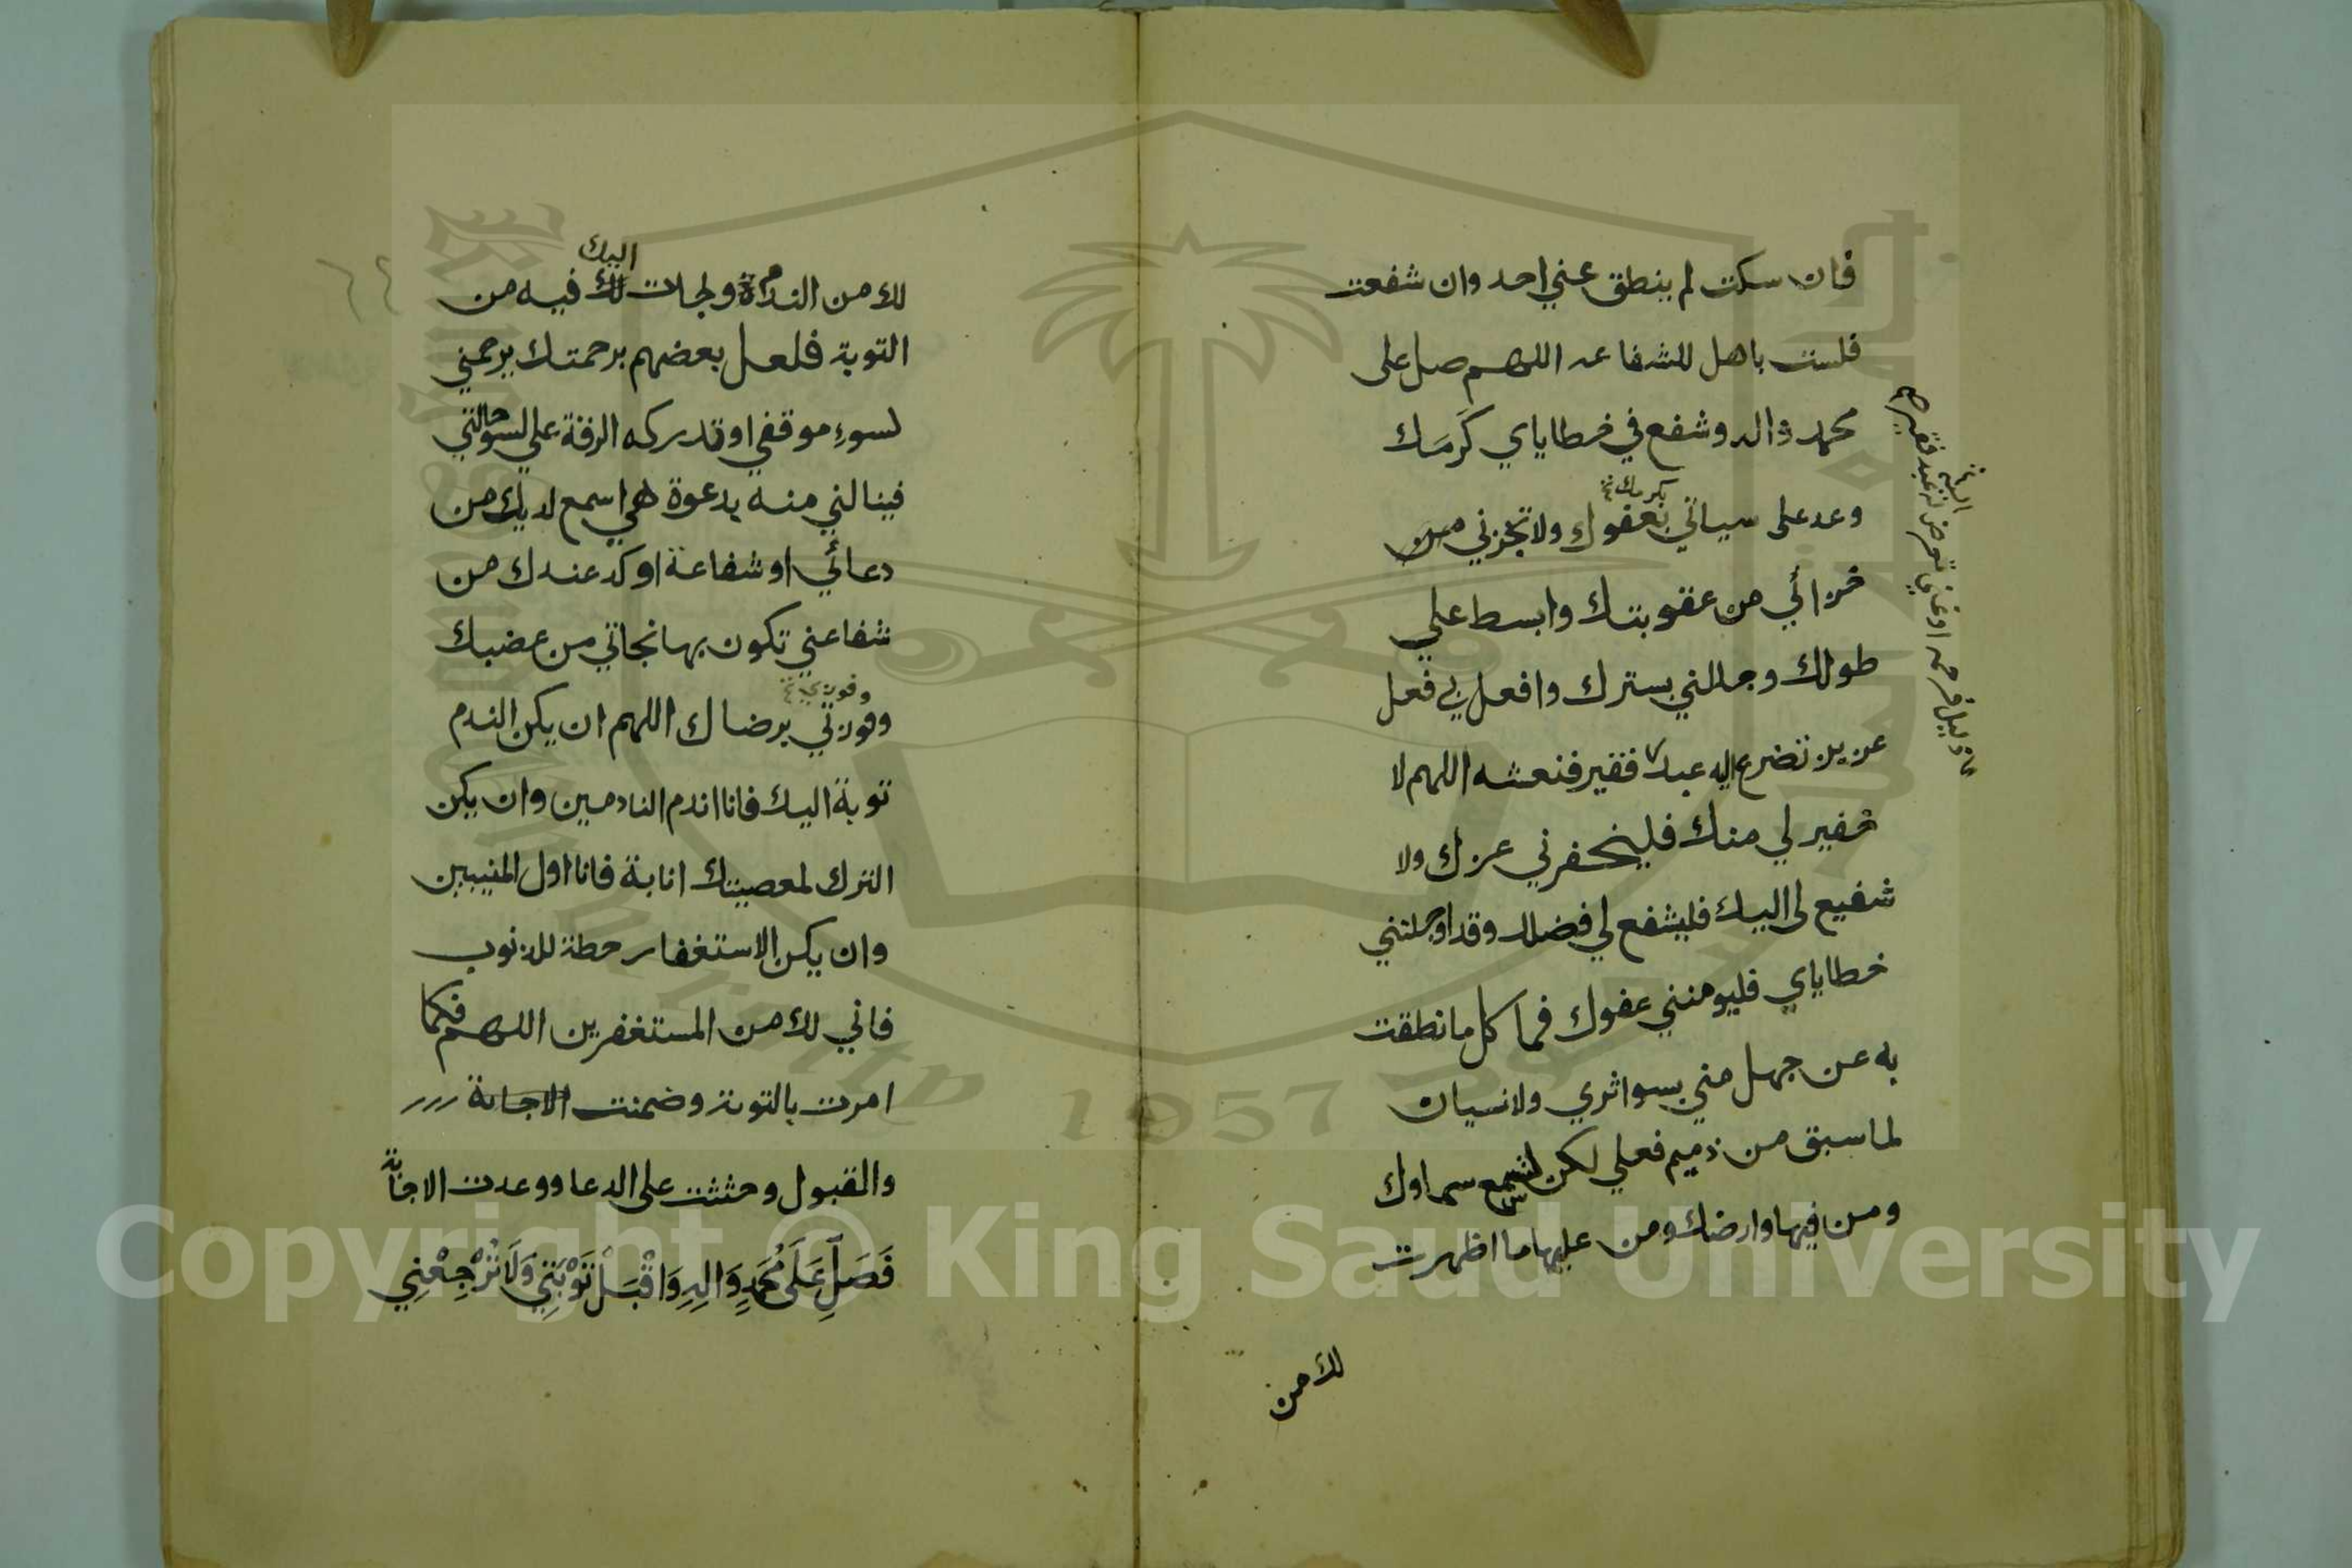 فان سكت لم ينطق عني احد وان شفعت
فلست باهل للشفاعه اللهم صل على
محمد واله وشفع في خطاياي كرمك
وعد على سياتي بعفوك ولا تجزني من
بكرمك
خزائي من عقوبتك وابسط علي
طولك وجللني بسترك وافعل بي فعل
عزيز تضرع اليه عبد فقير فنعشه اللهم لا
خفير لي منك فليخفرني عزك ولا
شفيع لي اليك فليشفع لي فضلك وقد اوجلتني
خطاياي فليومنني عفوك فما كل ما نطقت
به عن جهل مني بسو اثري ولا نسيان
لما سبق من ذميم فعلي لكن لتسمع سماوك
ومن فيها وارضك ومن عليها ما اظهرت
لك من
ذليل فرحمه او غني تعرض له عبد فقير
اليه
٦٤
لك من الندامة ولجات لك فيه من
اليك
التوبة فلعل بعضهم برحمتك يرحمني
لسوء موقفي او تدركه الرقة علي لسو حالتي
فينالني منه بدعوة هي اسمع لديك من
دعائي او شفاعة اوكد عندك من
شفاعتي تكون بها نجاتي من غضبك
وفوزتي برضاك اللهم ان يكن الندم
وفوزي
توبة اليك فانا اندم النادمين وان يكن
الترك لمعصيتك انابة فانا اول المنيبين
وان يكن الاستغفار حطة للذنوب
فاني لك من المستغفرين اللهم فكما
امرت بالتوبة وضمنت الاجابة
والقبول وحثثت على الدعا ووعدت الاجابة
فَصَلِّ عَلَى مُحَمَدٍ وَالِهِ وَاقْبَلْ تَوْبَتِي وَلَا تُرْجِعْنِي
Copyright © King Saud University
1957